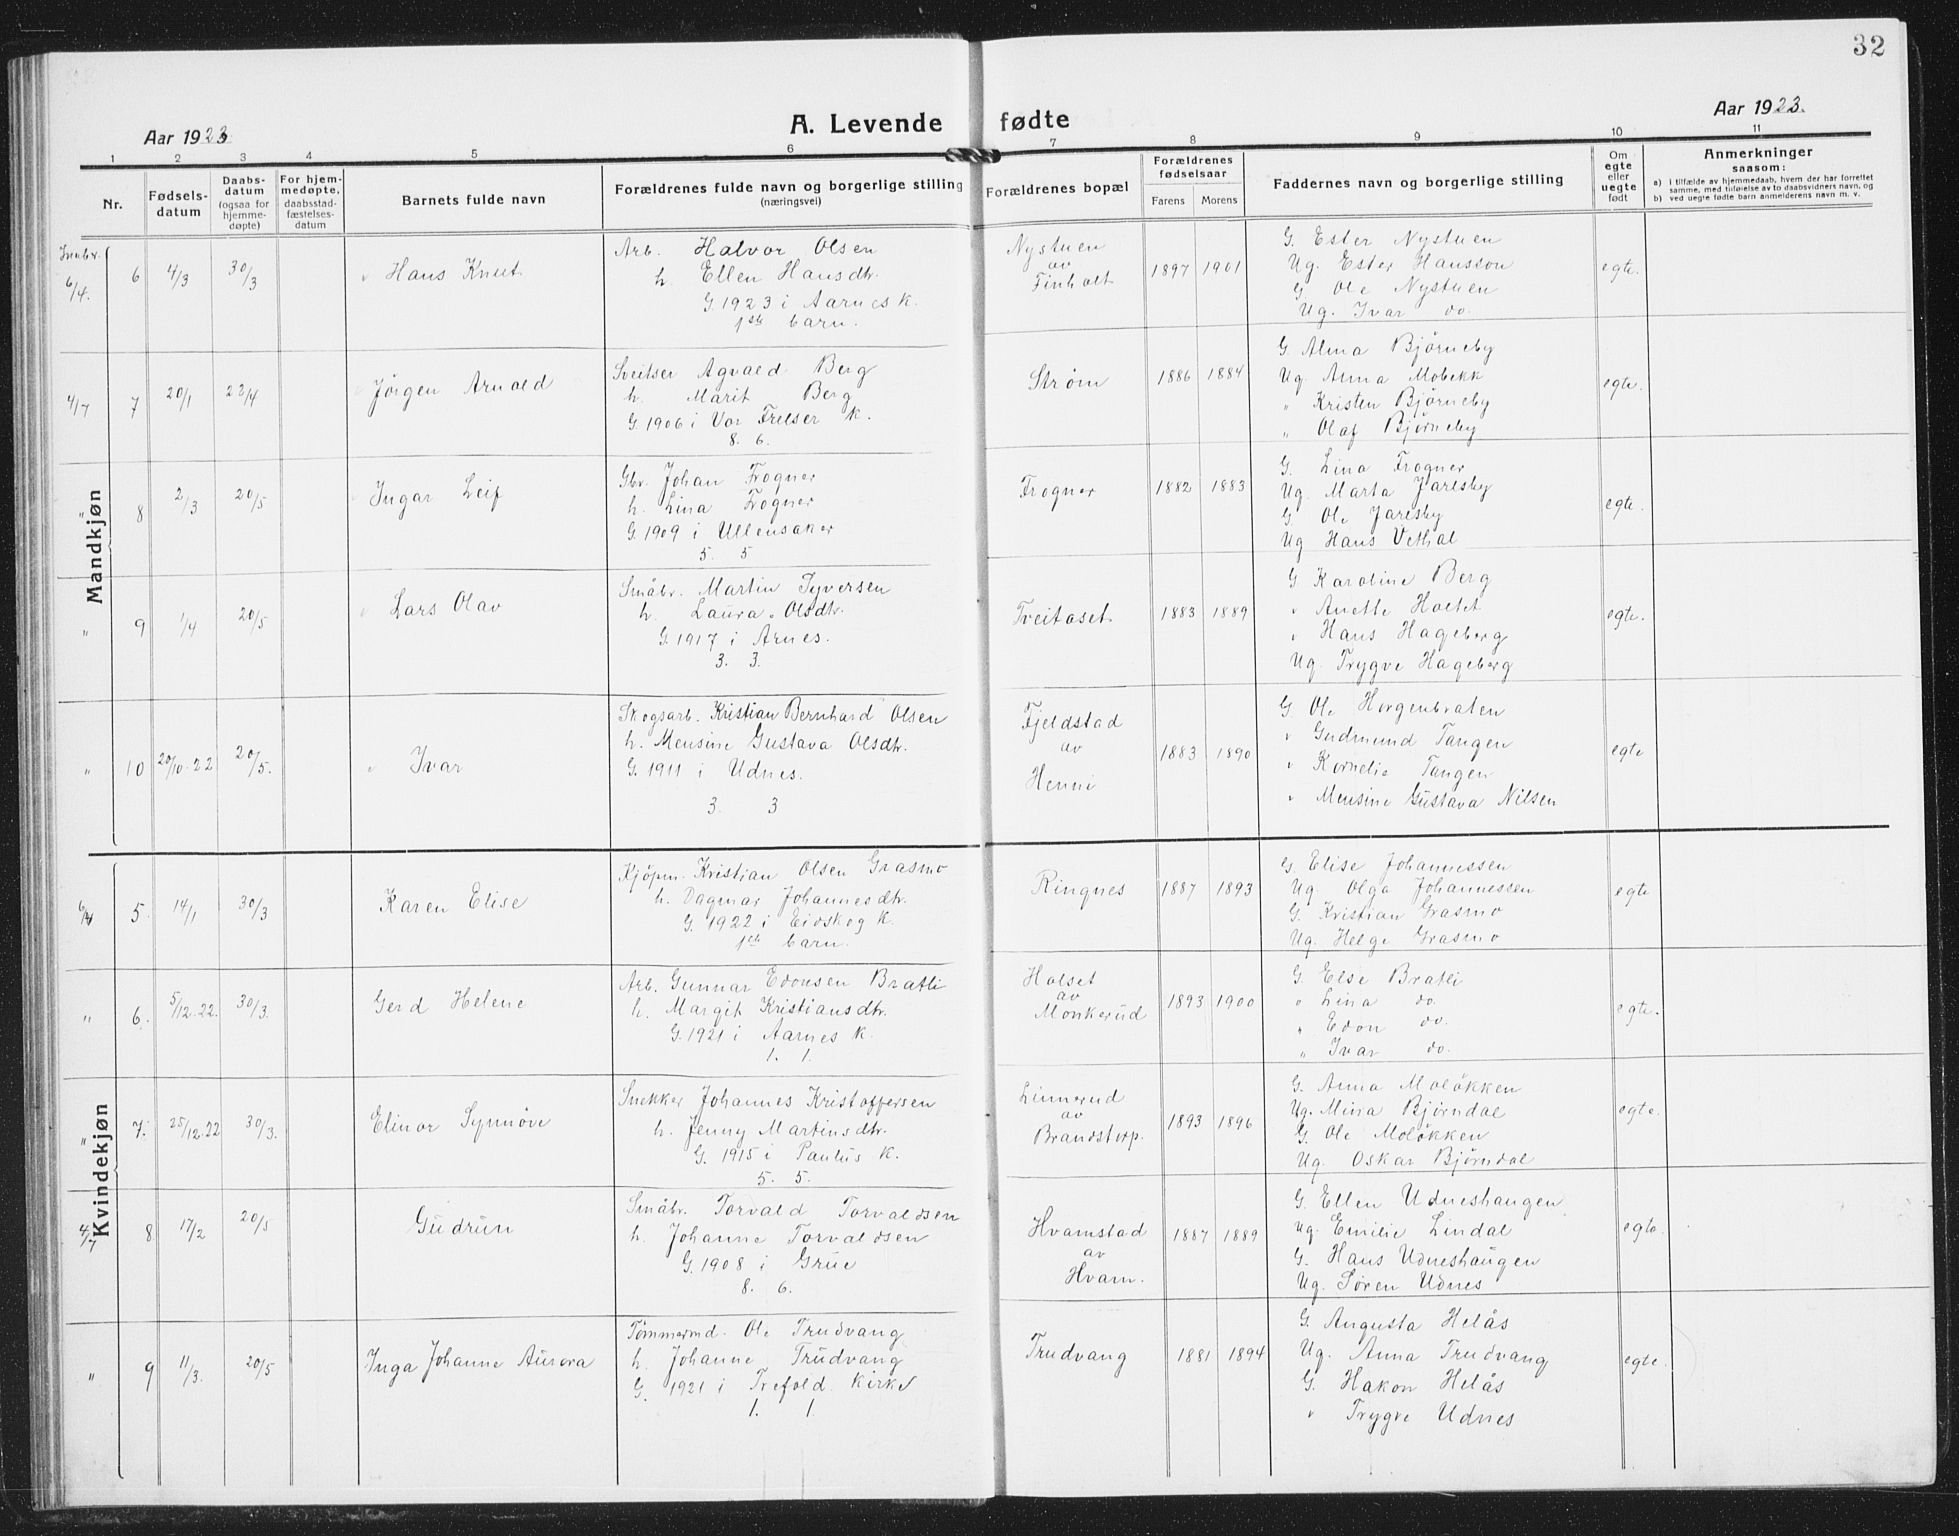 32
Aar 1923
A. Levende fødte
Aar 1923.
1 2 3 4 5 6 7 8 9 10 11
Nr.
Fødsels-
datum
Daabs-
datum
(ogsaa for
hjemme-
døpte)
For hjem-
medøpte,
daabsstad-
fæstelses-
datum
Barnets fulde navn
Forældrenes fulde navn og borgerlige stilling
(næringsvei)
Forældrenes bopæl
Forældrenes
fødselsaar
Farens Morens
Faddernes navn og borgerlige stilling
Om
egte
eller
uegte
født
Anmerkninger
saasom:
a) i tilfælde av hjemmedaab, hvem der har forrettet
samme, med tilføielse av to daabsvidners navn, og
b) ved uegte fødte barn anmelderens navn m. v.
Mandkjøn
Innbr.
6/4. 6 4/3 30/3 Hans Knut
Arb. Halvor Olsen
h. Ellen Hansdtr.
G. 1923 i Aarnes k.
1ste barn.
Nystuen
av
Finholt
1897 1901
G. Ester Nystuen
Ug. Ester Hansson
G. Ole Nystuen
Ug. Ivar do.
egte.
4/7 7 20/1 22/4 Jörgen Arnold
Sveitser Agvald Berg
h. Marit Berg
G. 1906 i Vor Frelser k.
8. 6.
Strøm
1886 1884
G. Alma Bjørneby
Ug. Anna Mobekk
" Kristen Bjørneby
" Olaf Bjørneby
egte.
" 8 2/3 20/5 Ingar Leif
Gbr. Johan Frogner
h. Lina Frogner
G. 1909 i Ullensaker
5 5
Frogner
1882 1883
G. Lina Frogner
Ug. Marta Jarlsby
G. Ole Jarlsby
Ug Hans Vethal
egte.
" 9 1/4 20/5 Lars Olav
Småbr. Martin Syversen
h. Laura Olsdtr.
G. 1917 i Arnes.
3. 3.
Tveitaset
1883 1889
G Karoline Berg
" Anette Holtet
" Hans Hageberg
Ug. Trygve Hageberg
egte.
" 10 20/10.22 20/5. Ivar
Skogsarb. Kristian Bernhard Olsen
h. Mensine Gustava Olsdtr.
G. 1911 i Udnes.
3. 3
Fjeldstad
av
Henni
1883 1890
G. Ole Horgenbraten
" Gudmund Tangen
" Kornelie Tangen
" Mensine Gustava Nilsen
egte
Kvindekjøn
6/4 5. 14/1 30/3 Karen Elise
Kjöpm. Kristian Olsen Grasmo
h. Dagmar Johannesdtr.
G. 1922 i Eidskog k.
1ste barn.
Ringnes
1887 1893
G. Elise Johannessen
Ug. Olga Johannessen
G. Kristian Grasmo
Ug. Helge Grasmo
egte
" 6. 5/12.22. 30/3. Gerd Helene
Arb. Gunnar Edonsen Bratli
h. Margit Kristiansdtr.
G. 1921 i Aarnes k.
1. 1.
Holset
av
Monkerud
1893 1900
G. Else Bratli
" Lina do.
" Edon do.
" Ivar do.
egte.
" 7. 25/12.22 30/3. Elinor Synnøve
Snekker Johannes Kristoffersen
h. Jenny Martinsdtr.
G. 1915 i Paulus k.
5. 5.
Linnerud
av
Brandstorp.
1893 1896
G. Anna Moløkken
Ug. Mina Bjørndal
G. Ole Moløkken
Ug. Oskar Bjørndal
egte.
4/7 8 17/2 20/5 Gudrun
Småbr. Torvald Torvaldsen
h. Johanne Torvaldsen
G. 1908 i Grue
8. 6.
Hvamstad
av
Hvam.
1887 1889
G. Ellen Udneshaugen
Ug. Emilie Lindal
G. Hans Udneshaugen
Ug. Søren Udnes
egte.
" 9 11/3. 20/5 Inga Johanne Aurora
Tömmermd. Ole Trudvang
h. Johanne Trudvang
G. 1921 i Trefold. Kirke
1. 1.
Trudvang
1881 1894
G. Augusta Helås
Ug. Anna Trudvang
G. Hakon Helås
" Trygve Udnes
egte.